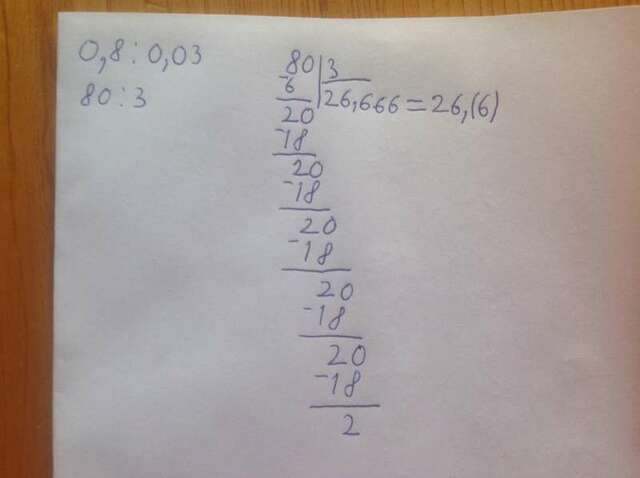 0,8 : 0,03
80 : 3
80 | 3
-6 | 26,666 = 26,(6)
20
-18
20
-18
20
-18
20
-18
20
-18
2